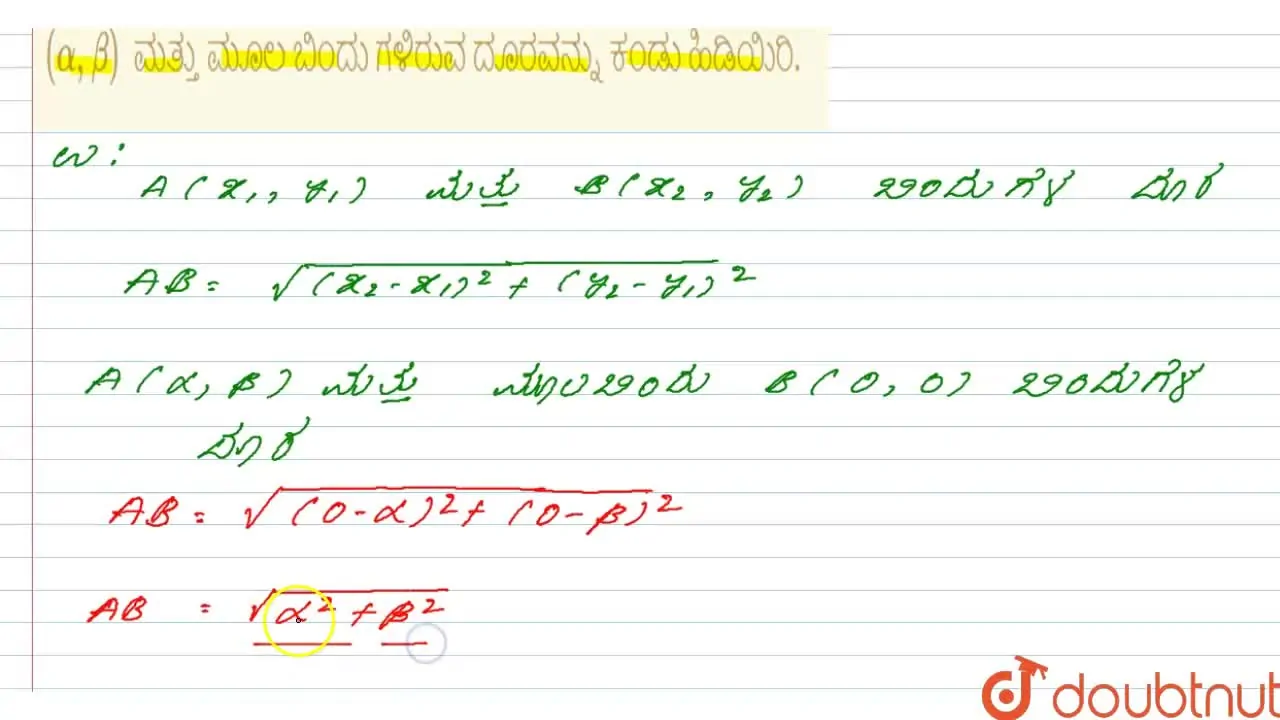 (α, β) ಮತ್ತು ಮೂಲ ಬಿಂದು ಗಳಿರುವ ದೂರವನ್ನು ಕಂಡು ಹಿಡಿಯಿರಿ.
ಉ :
A(x₁, y₁) ಮತ್ತು B(x₂, y₂) ಬಿಂದುಗಳ ದೂರ
AB = √(x₂-x₁)² + (y₂-y₁)²
A(α, β) ಮತ್ತು ಮೂಲಬಿಂದು B(0, 0) ಬಿಂದುಗಳ
ದೂರ
AB = √(0-α)² + (0-β)²
AB = √α² + β²
doubtnut